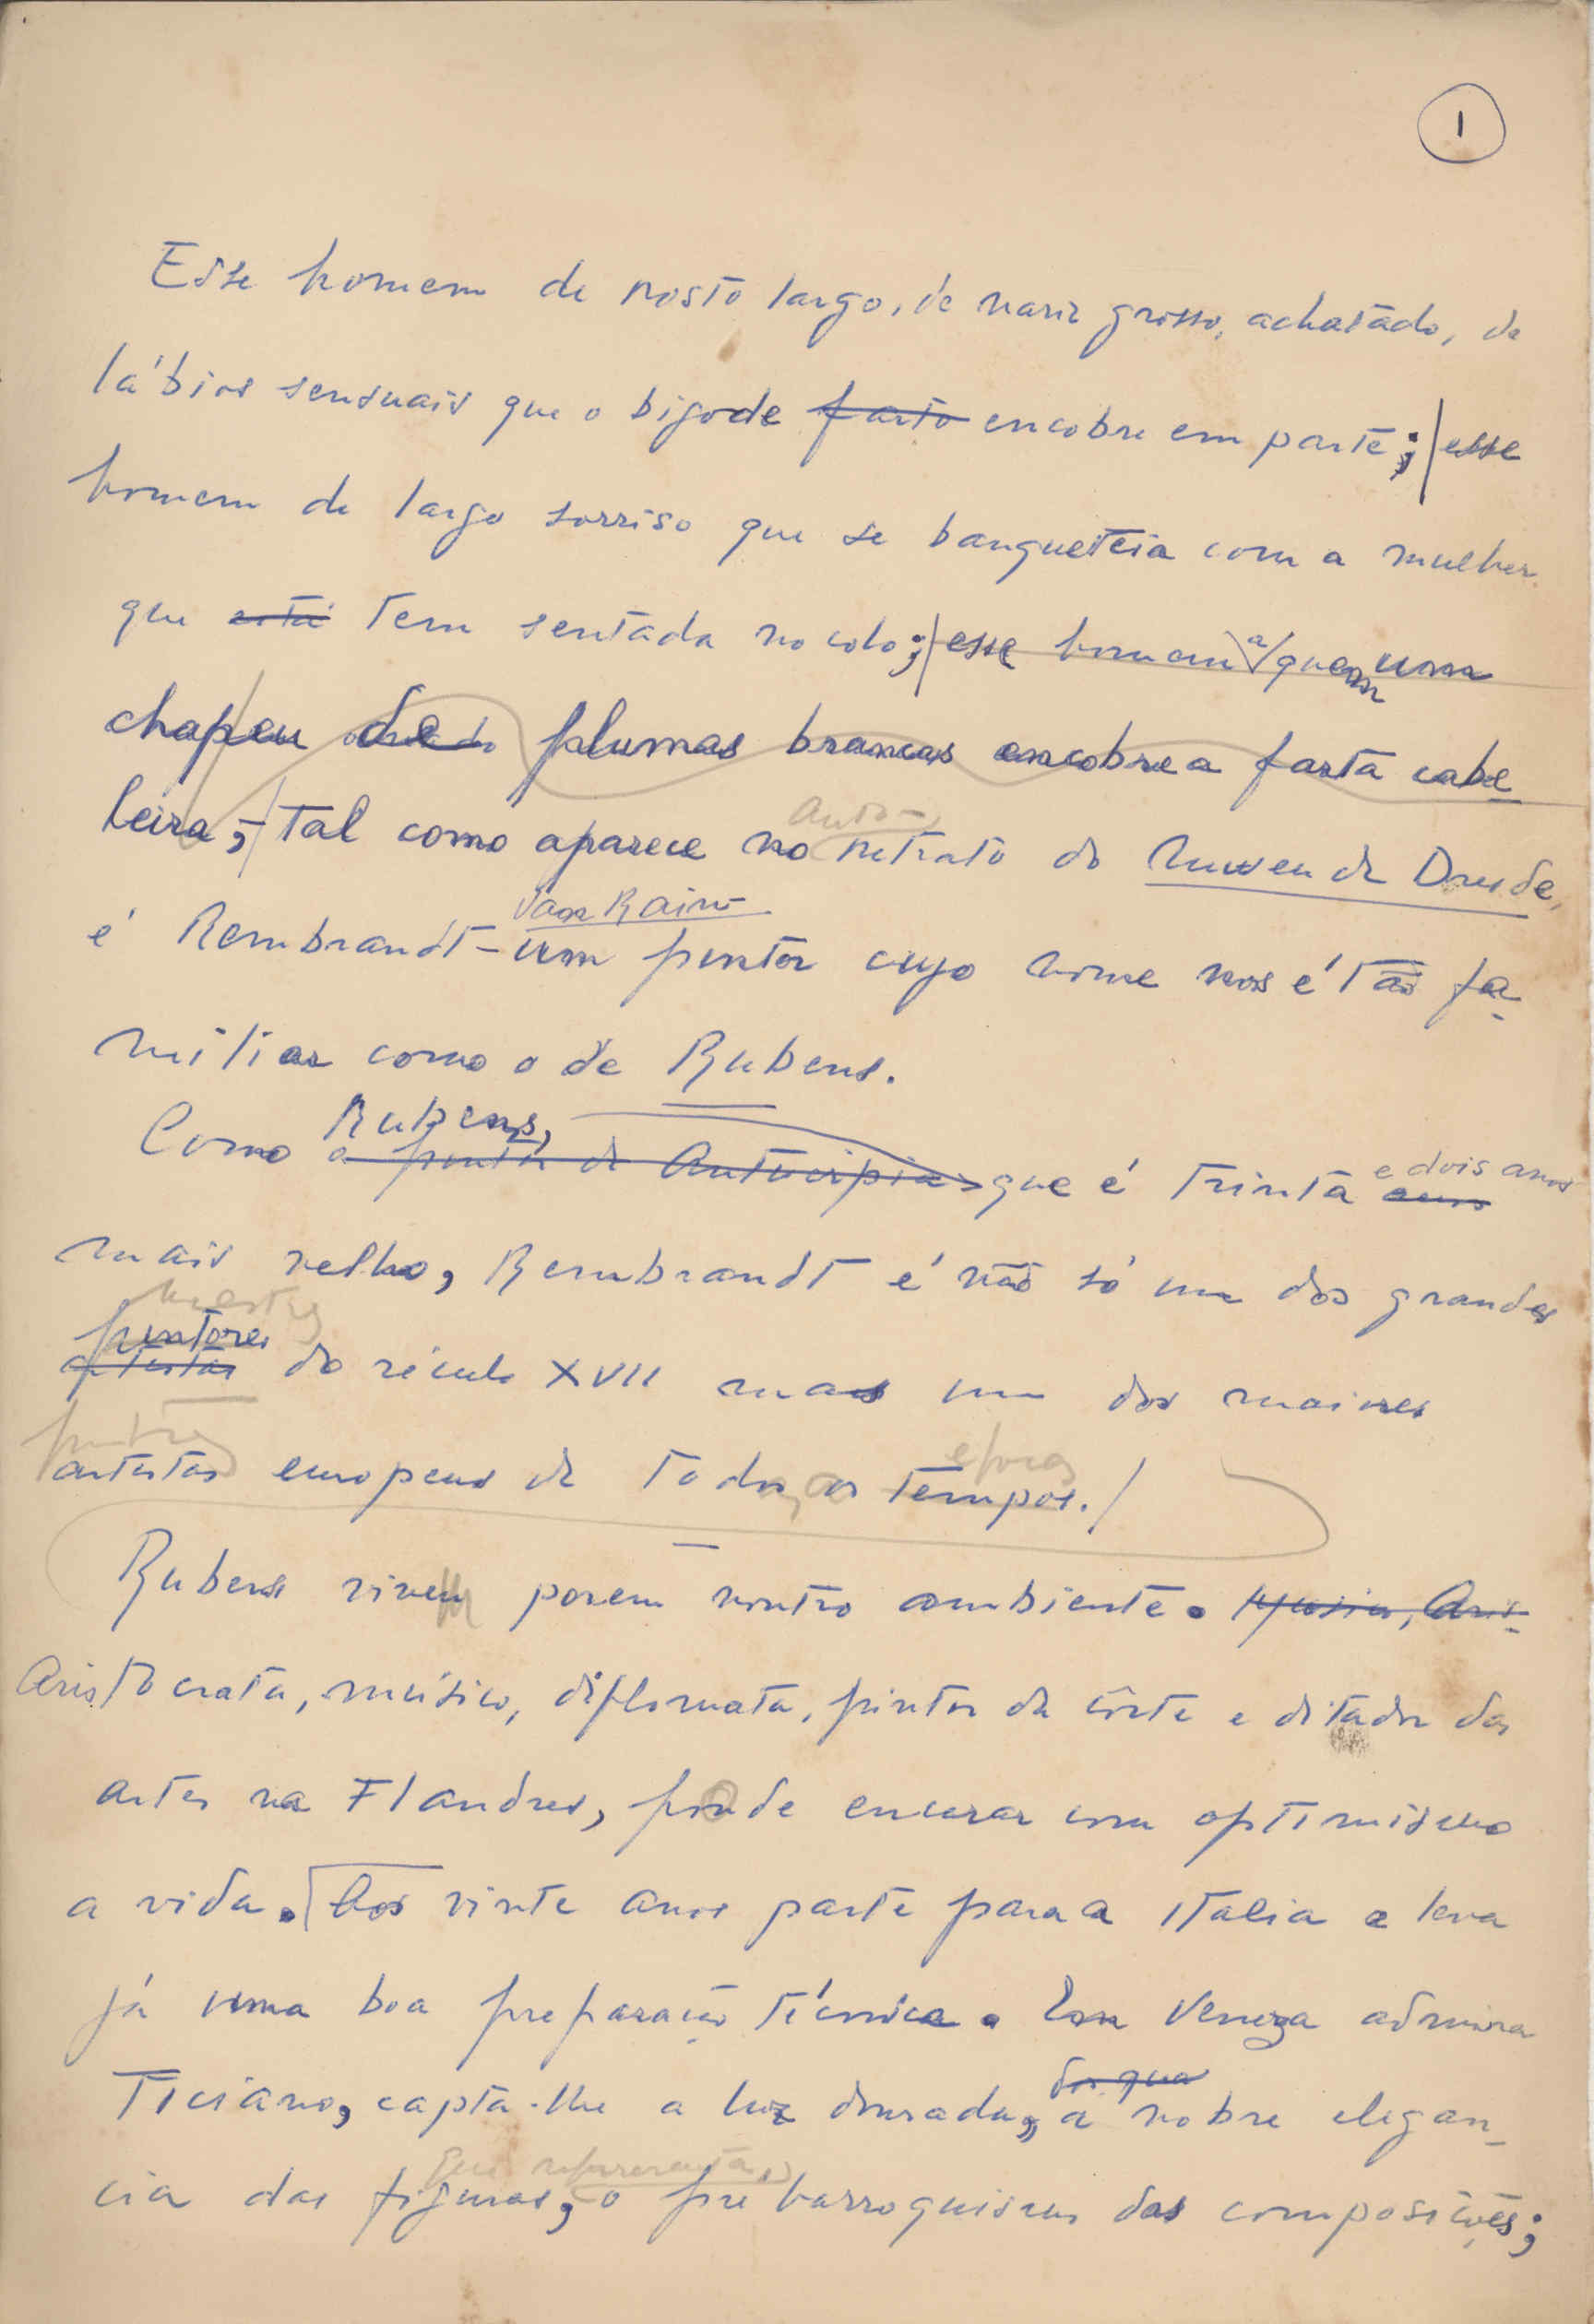 1
Esse homem de rosto largo, de nariz grosso, achatado, de
lábios sensuais que o bigode farto encobre em parte; esse
homem de largo sorriso que se banqueteia com a mulher
que está tem sentada no colo; esse homem a quem um
chapeu de plumas brancas encobre a farta cabe
leira, tal como aparece no auto- retrato do Museu de Dresde,
Van Rain
é Rembrandt - um pintor cujo nome nos é tão fa-
miliar como o de Rubens.
Como Rubens,
o pintor de Antuérpia que é trinta e dois anos
mais velho, Rembrandt é não só um dos grandes
mestres
pintores
artistas do século XVII mas um dos maiores
pintores
artistas europeus de todos os tempos.
epocas
Rubens viveu porem noutro ambiente. Musico, Aris-
Aristocrata, músico, diplomata, pintor da côrte e ditador das
artes na Flandres, poude encarar com optimismo
a vida. Aos vinte anos parte para a Italia e leva
já uma boa preparação técnica. Em Veneza admira
Ticiano, capta-lhe a luz dourada, a nobre elegan-
cia das figuras, o pre barroquismo das composições;